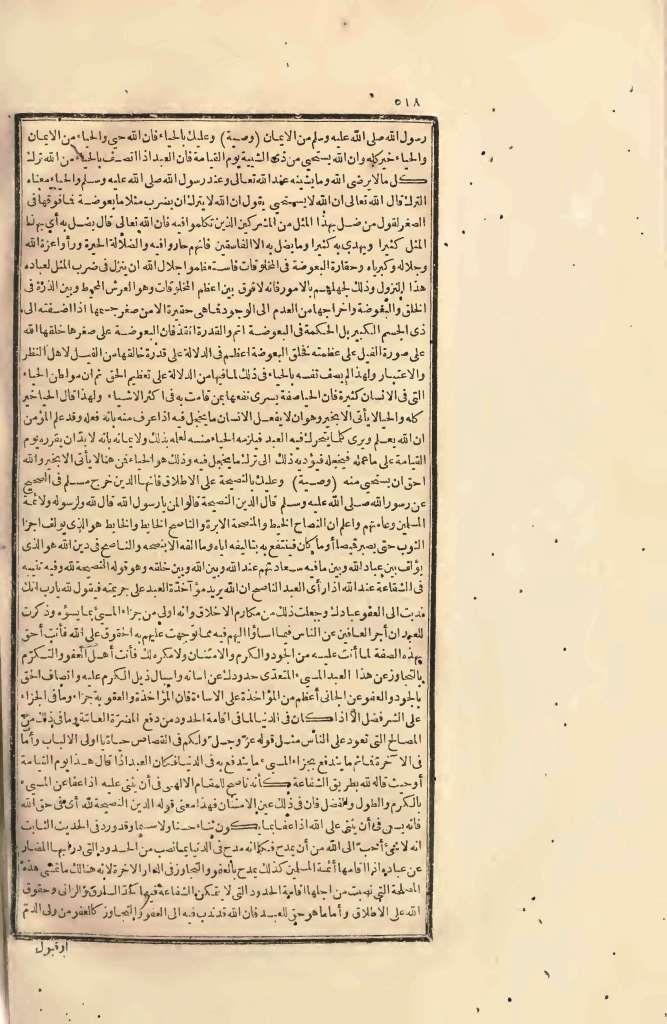 ٥١٨
رسول الله صلى الله عليه وسلم من الايمان (وصية) وعليك بالحياء فان الله حيي والحياء من الايمان
والحياء خير كله وان الله يستحيي من ذى الشيبة يوم القيامة فان العبد اذا اتصف بالحياء من الله ترك
كل مالا يرضى الله وما يشينه عند الله تعالى وعند رسول الله صلى الله عليه وسلم والحياء معناه
الترك قال الله تعالى ان الله لا يستحيي يقول ان الله لا يترك ان يضرب مثلا ما بعوضة فما فوقها فى
الصغر لقول من ضل بهذا المثل من المشركين الذين تكلموا فيه فان الله تعالى قال يضل به أى بهذا
المثل كثيرا ويهدى به كثيرا وما يضل به الا الفاسقين فانهم حاروا فيه والضلالة الحيرة ورأوا عزة الله
وجلاله وكبرياءه وحقارة البعوضة فى المخلوقات فاستعظموا جلال الله ان ينزل فى ضرب المثل لعباده
هذا النزول وذلك لجهلهم بالامور فانه لا فرق بين اعظم المخلوقات وهو العرش المحيط وبين الذرة فى
الخلق والبعوضة واخراجها من العدم الى الوجود فما هى حقيرة الا من صغر جسمها اذا اضفته الى
ذى الجسم الكبير بل الحكمة فى البعوضة اتم والقدرة انفذ فان البعوضة على صغرها خلقها الله
على صورة الفيل على عظمته فخلق البعوضة اعظم فى الدلالة على قدرة خالقها من الفيل لاهل النظر
والاعتبار ولهذا لم يصف نفسه بالحياء فى ذلك لما فيها من الدلالة على تعظيم الحق ثم ان مواطن الحياء
التى فى الانسان كثيرة فان الحياء صفة يسرى نفعها بمن قامت به فى اكثر الاشياء ولهذا قال الحياء خير
كله والحياء لا يأتى الا بخير وهو ان لا يفعل الانسان ما يخجل فيه اذا عرف منه بانه فعله وقد علم المؤمن
ان الله يعلم ويرى كل ما يتحرك فيه العبد فيلزمه الحياء منه لعلمه بذلك ولايمانه بانه لا بد ان يقرره يوم
القيامة على ما عمله فيخجله فيؤديه ذلك الى ترك ما يخجل فيه وذلك هو الحياء فمن هنا لا يأتى الا بخير والله
احق ان يستحيى منه (وصية) وعليك بالنصيحة على الاطلاق فانها الدين خرج مسلم فى الصحيح
عن رسول الله صلى الله عليه وسلم قال الدين النصيحة قالوا لمن يا رسول الله قال لله ولرسوله ولائمة
المسلمين وعامتهم واعلم ان النصاح الخيط والمنصحة الابرة والناصح الخايط والخايط هو الذى يؤلف اجزاء
الثوب حتى يصير قميصا أو ما كان فينتفع به بتاليفه اياه وما الفه الا بنصحه والناصح فى دين الله هو الذى
يؤلف بين عباد الله وبين ما فيه سعادتهم عند الله وبين الله وبين خلقه وهو قوله النصيحة لله وفيه تنبيه
فى الشفاعة عند الله اذا رأى العبد الناصح ان الله يريد مؤاخذة العبد على جريمته فيقول لله يارب انك
ندبت الى العفو عبادك وجعلت ذلك من مكارم الاخلاق وانه اولى من جزاء المسىء بما يسؤه وذكرت
للعبد ان أجر العافين عن الناس فيما اساؤا اليهم فيه مما توجهت عليهم به الحقوق على الله فأنت أحق
بهذه الصفة لما أنت عليه من الجود والكرم والامتنان ولا مكره لك فأنت أهل العفو والتكرم
بالتجاوز عن هذا العبد المسىء المتعدى حدودك عن اساءته واسبال ذيل الكرم عليه واتصاف الحق
بالجود والعفو عن الجانى أعظم من المؤاخذة على الاساءة فان المؤاخذة والعقوبة جزاء وما فى الجزاء
على الشر فضل الا اذا كان فى الدنيا لما فى اقامة الحدود من دفع المضرة العامة وما فى ذلك من
المصالح التى تعود على الناس مثل قوله عز وجل ولكم فى القصاص حياة يا اولى الالباب وأما
فى الآخرة فما ثم ما يندفع بجزاء المسىء ما يندفع به فى الدنيا فكان العبد اذا قال هذا يوم القيامة
أو حيث قاله لله بطريق الشفاعة كأنه ناصح للمقام الالهى فى أن يثنى عليه اذا عفا عن المسىء
بالكرم والطول والفضل فان فى ذلك عين الامتنان فهذا معنى قوله الدين النصيحة لله أى فى حق الله
فانه يسعى فى أن يثنى على الله اذا عفا بما يكون ثناء حسنا ولا سيما وقد ورد فى الحديث الثابت
انه لا شئ أحب الى الله من أن يمدح فكما انه مدح فى الدنيا بما نصب من الحدود التى درأ بها المضار
عن عباده اذا اقامها أئمة المسلمين كذلك يمدح بالعفو والتجاوز فى الدار الاخرة لانه هنالك ما تمشى هذه
المصلحة التى نصبت من اجلها اقامة الحدود التى لا يتمكن الشفاعة فيها كحد السارق والزانى وحقوق
الله على الاطلاق وأما ما هو حق للعبد فان الله قد ندب فيه الى العفو والتجاوز كالعفو من ولى الدم
او قبول